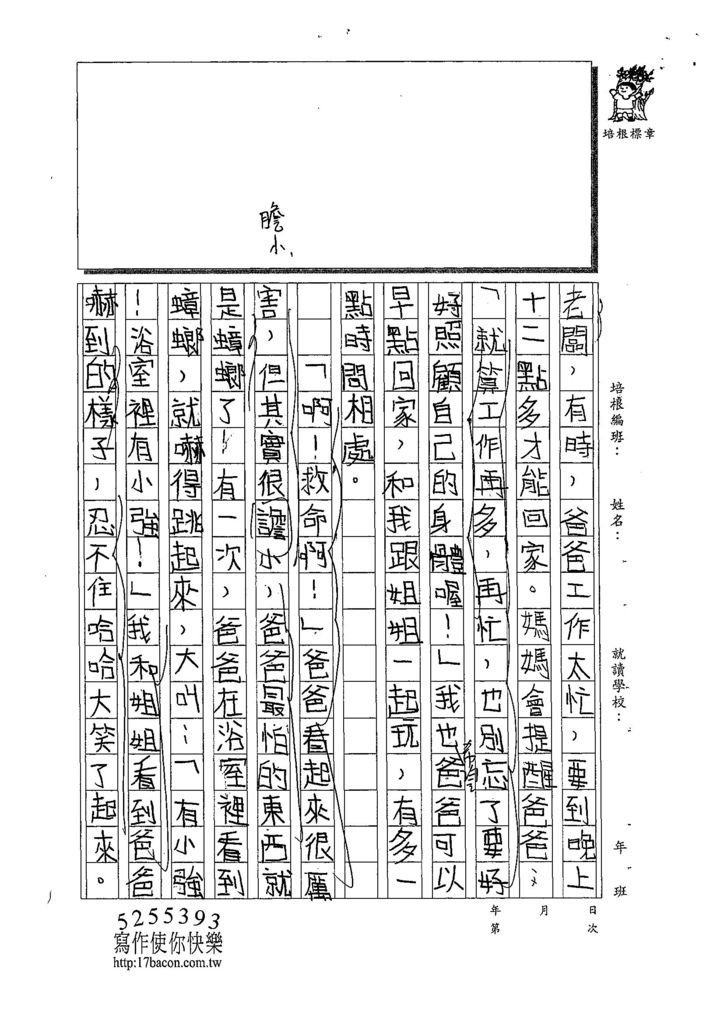 培根標章
膽小
培根編班：
姓名：
就讀學校：
年 班
老闆，有時，爸爸工作太忙，要到晚上
十二點多才能回家。媽媽會提醒爸爸：
「就算工作再多，再忙，也別忘了要好
好照顧自己的身體喔！」我也希望爸爸可以
早點回家，和我跟姐姐一起玩，有多一
點時間相處。
「啊！救命啊！」爸爸看起來很厲
害，但其實很譫小，爸爸最怕的東西就
是蟑螂了！有一次，爸爸在浴室裡看到
蟑螂，就嚇得跳起來，大叫：「有小強
！浴室裡有小強！」我和姐姐看到爸爸
嚇到的樣子，忍不住哈哈大笑了起來。
年 月 日
第 次
5255393
寫作使你快樂
http:17bacon.com.tw